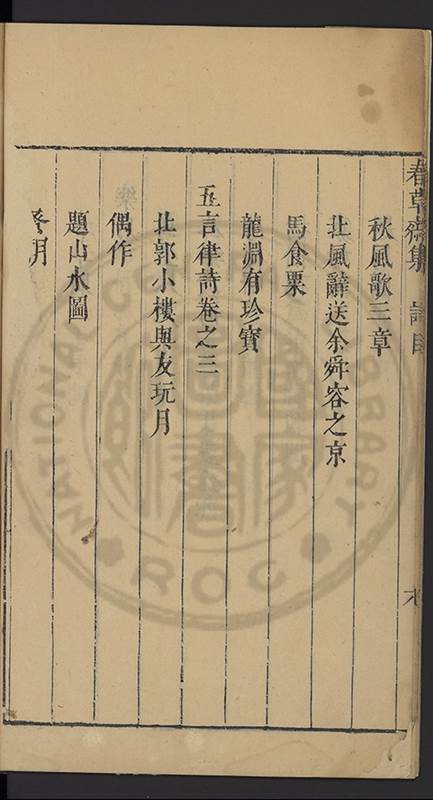 春草齋集 詩目
秋風歌三章
北風辭送余舜容之京
馬食粟
龍淵有珍寶
五言律詩卷之三
北郭小樓與友玩月
偶作
題山水圖
月
NATIONAL CENTRAL LIBRARY
ROC